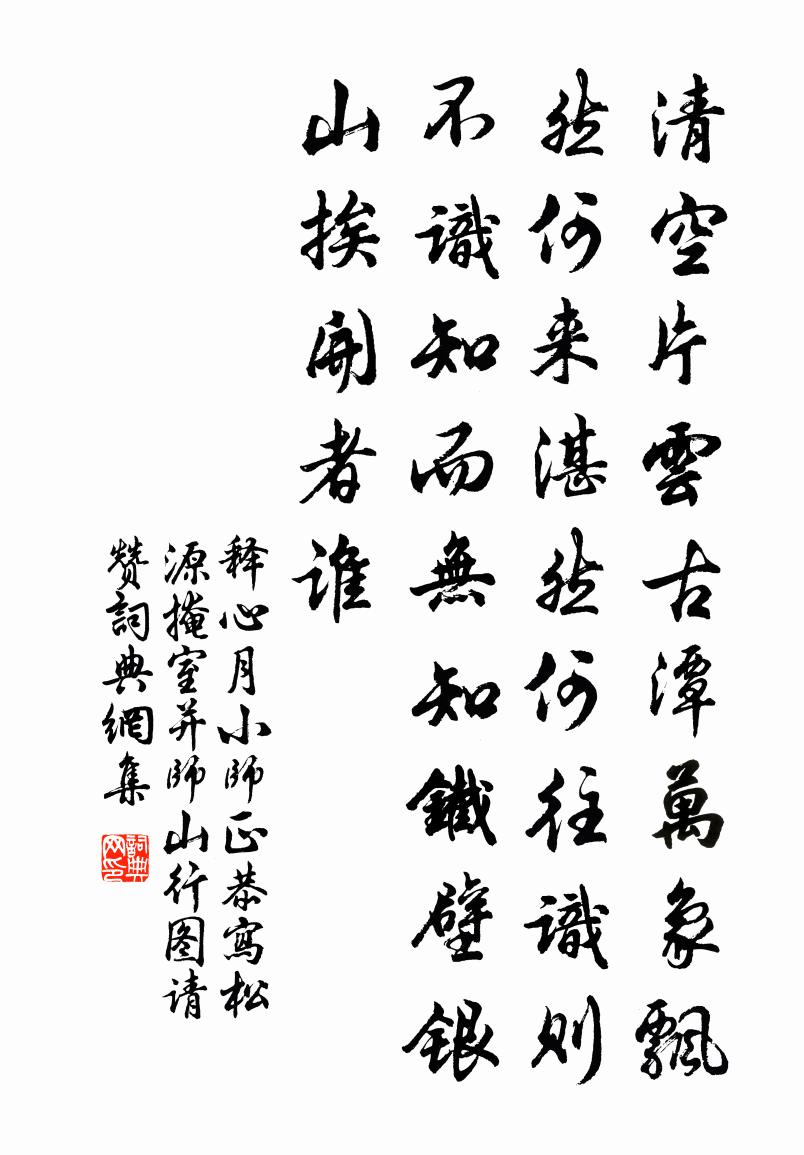 清空片雲古潭萬象飄
然何来湛然何往識則
不識知而無知鐵壁銀
山挨開者誰
释心月小師正恭寫松
源掩室并師山行图请
赞詞典網集
詞典网印